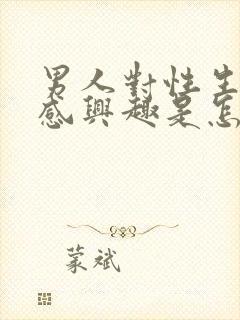 男人對性生
感興趣是怎
蒙斌